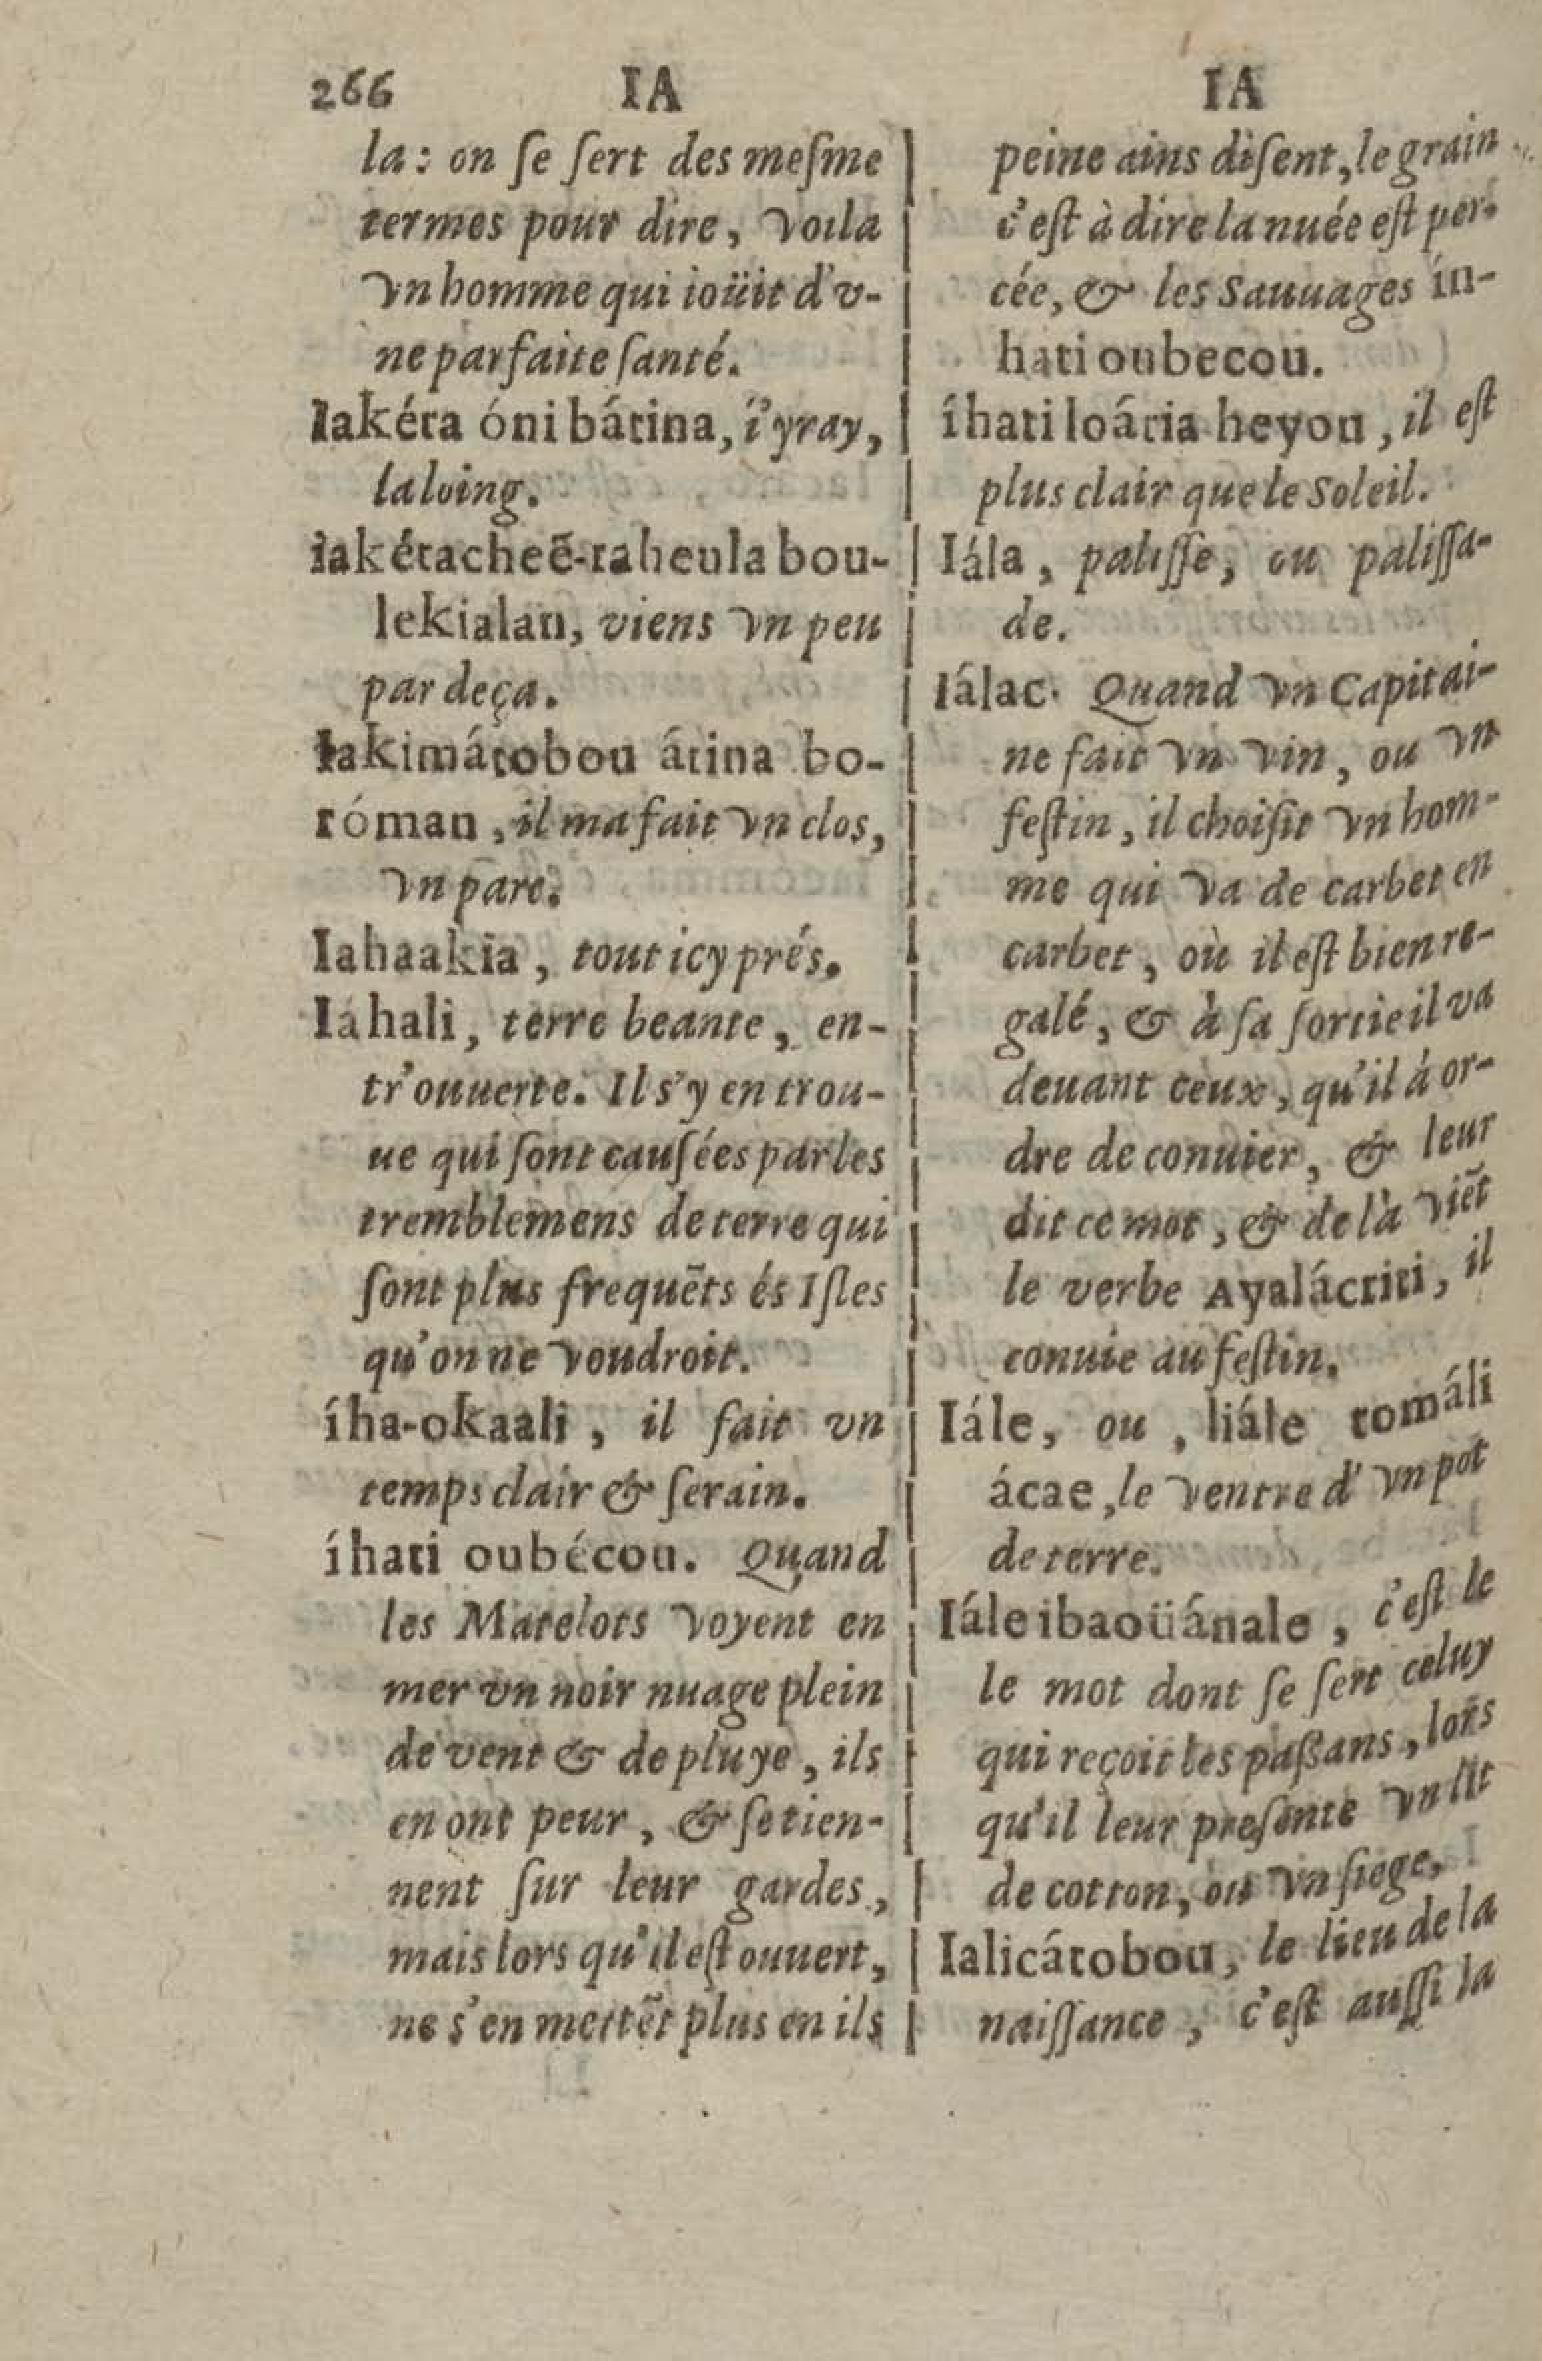 266 IA IA
la : on ſe ſert des meſme
termes pour dire, voila
vn homme qui ioüit d'v-
ne parfaite ſanté.
Iakéta óni bátina, i'yray,
la loing.
iakétacheẽ-raheula bou-
lekialan, viens vn peu
par deça.
Iakimátobou átina bo-
róman, il ma fait vn clos,
vn parc.
Iahaakia, tout icy prés.
Iáhali, terre beante, en-
tr'ouuerte. Il s'y en trou-
ue qui ſont cauſées par les
tremblemens de terre qui
ſont plus frequẽts és Iſles
qu'on ne voudroit.
íha-okaali, il fait vn
temps clair & ſerain.
íhati oubécou. Quand
les Matelots voyent en
mer vn noir nuage plein
de vent & de pluye, ils
en ont peur, & ſe tien-
nent ſur leur gardes,
mais lors qu'il eſt ouuert,
ne s'en mettẽt plus en ils
peine ains diſent, le grain
c'eſt à dire la nuée eſt per-
cée, & les Sauuages ín-
hati oubecou.
íhati loária heyou, il eſt
plus clair que le Soleil.
Iála, paliſſe, ou paliſſa-
de.
Iálac. Quand vn Capitai-
ne fait vn vin, ou vn
feſtin, il choiſit vn hom-
me qui va de carbet en
carbet, où il eſt bien re-
galé, & à ſa ſortie il va
deuant ceux, qu'il à or-
dre de conuier, & leur
dit ce mot, & de là viẽt
le verbe Ayaláctiti, il
conuie au feſtin.
Iále, ou, liále tomáli
ácae, le ventre d'vn pot
de terre.
Iále ibaoüánale, c'eſt le
le mot dont ſe ſert celuy
qui reçoit les paßans, lors
qu'il leur preſente vn lit
de cotton, ou vn ſiege,
Ialicátobou, le lieu de la
naiſſance, c'eſt auſſi la